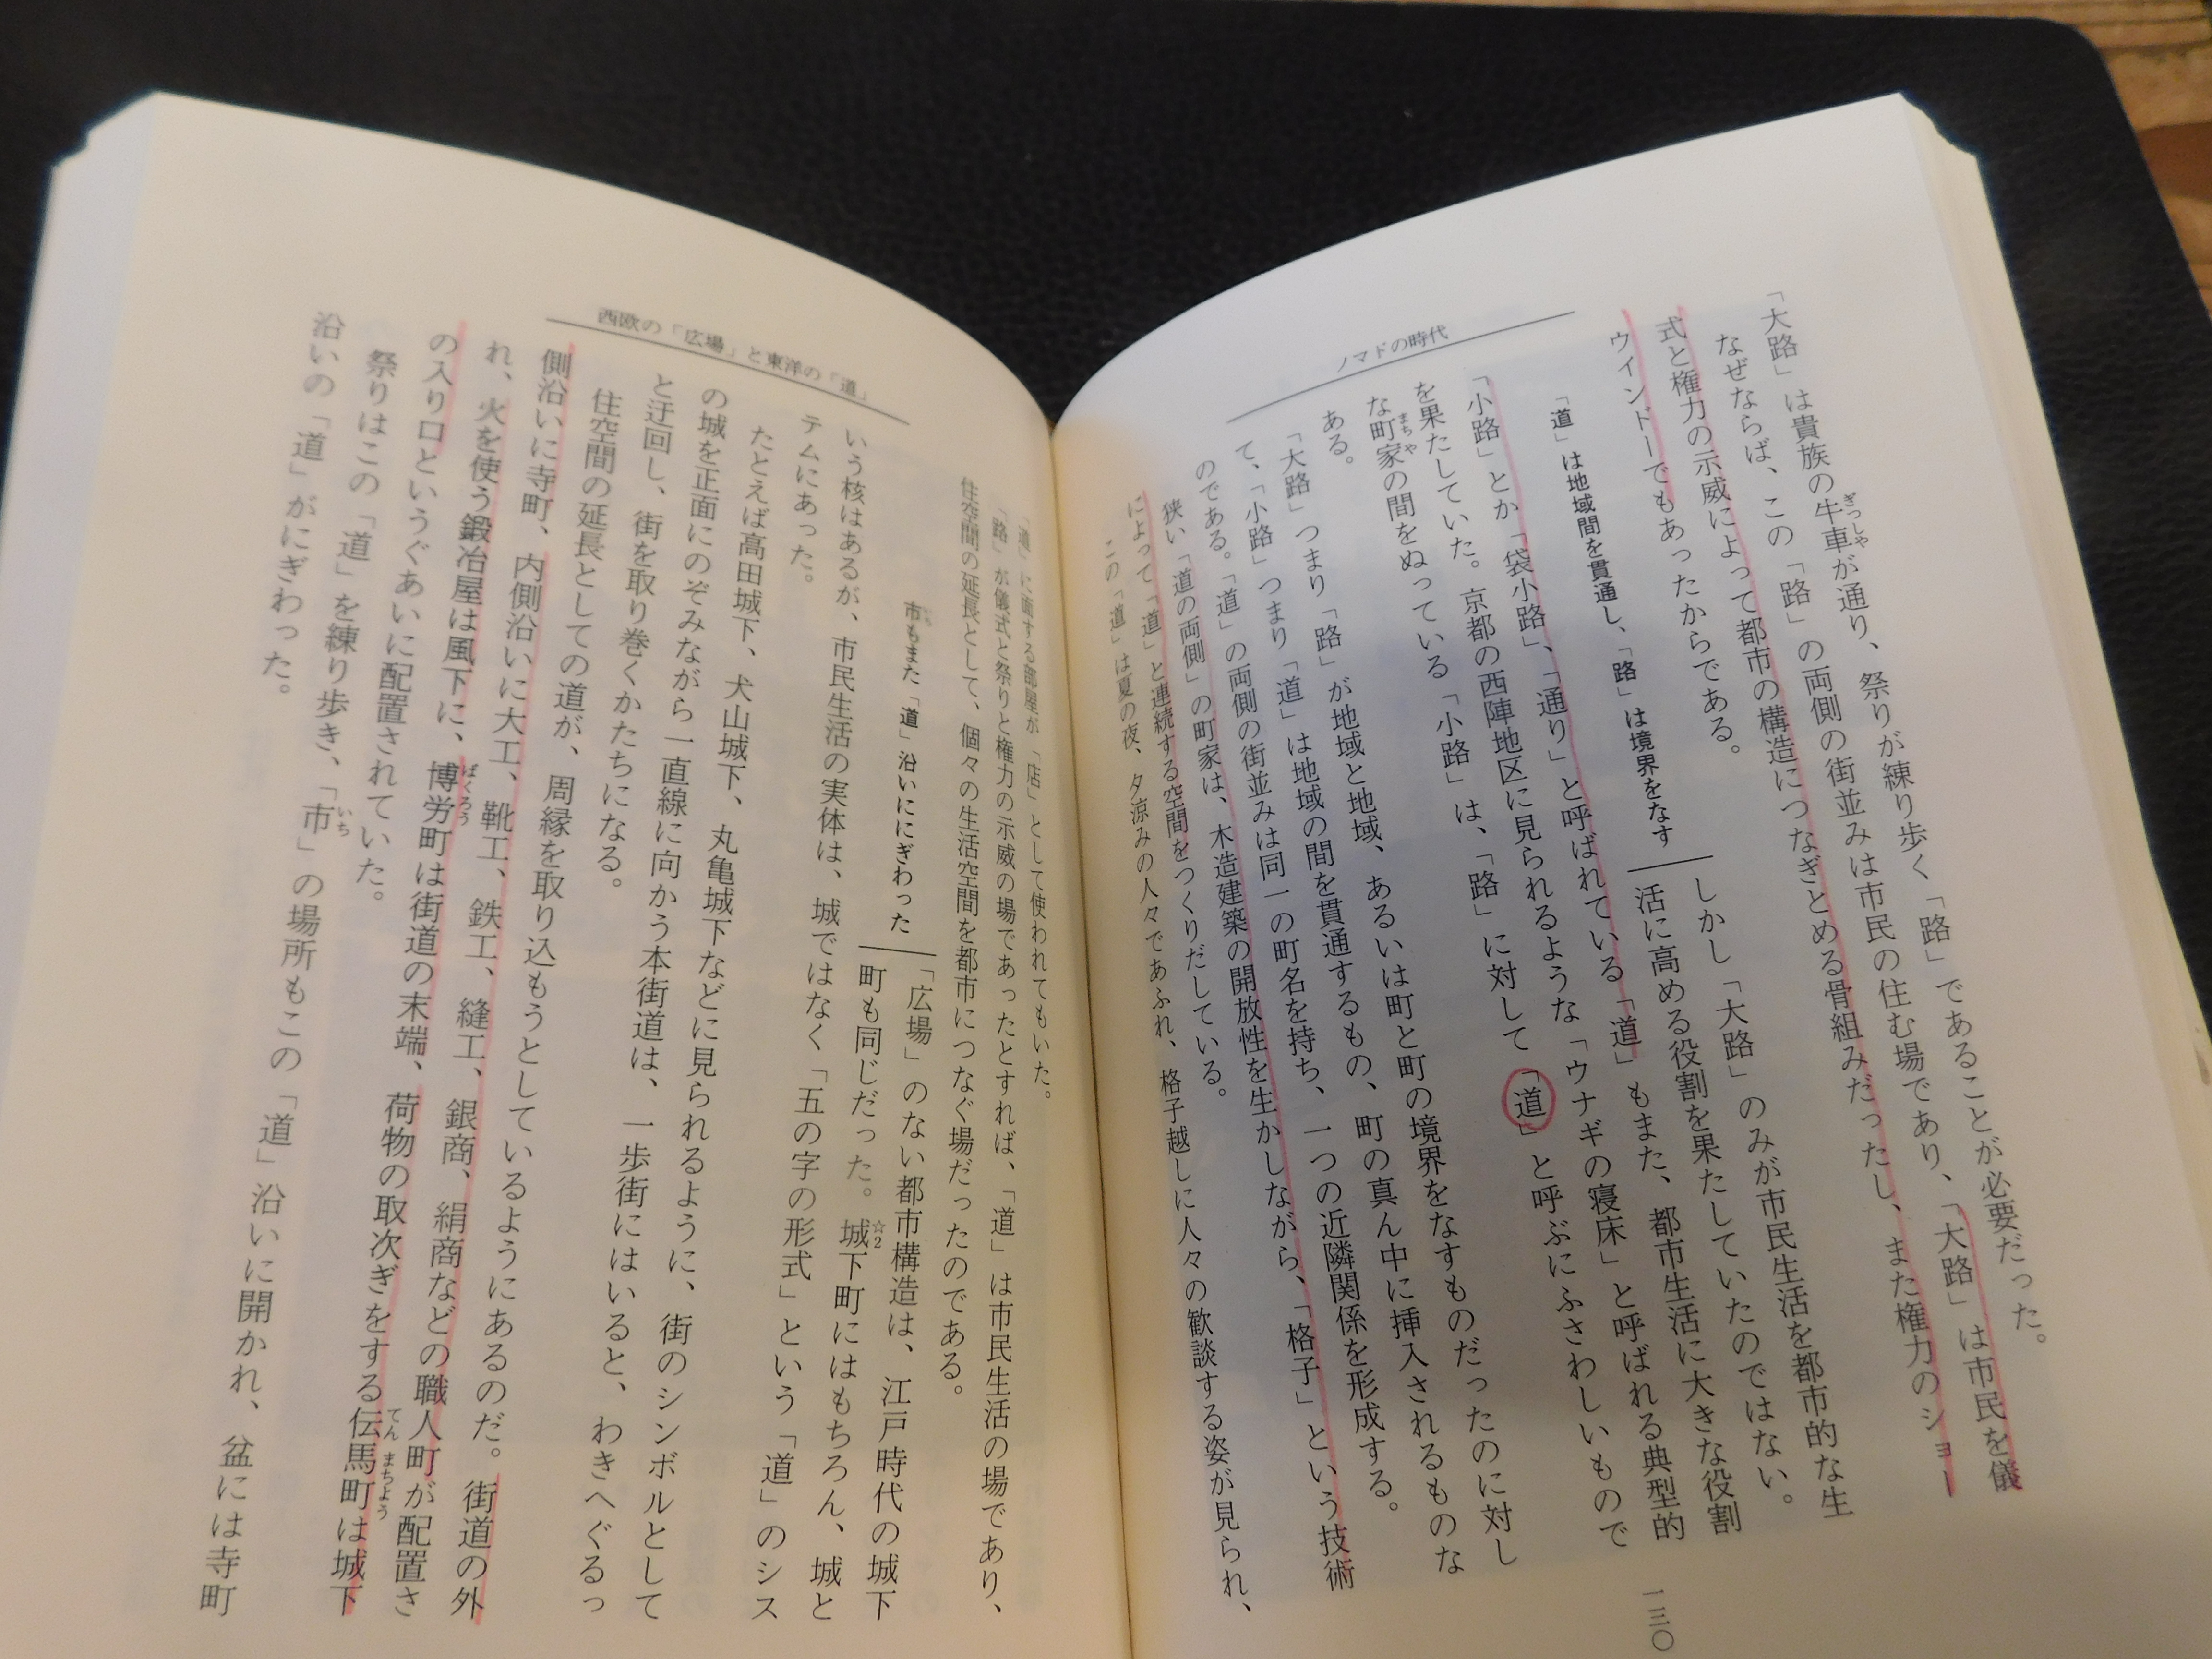 ノマドの時代
「大路」は貴族の牛車が通り、祭りが練り歩く「路」であることが必要だった。
なぜならば、この「路」の両側の街並みは市民の住む場であり、「大路」は市民を儀
式と権力の示威によって都市の構造につなぎとめる骨組みだったし、また権力のショー
ウインドーでもあったからである。
「道」は地域間を貫通し、「路」は境界をなす
しかし「大路」のみが市民生活を都市的な生
活に高める役割を果たしていたのではない。
「小路」とか「袋小路」、「通り」と呼ばれている「道」もまた、都市生活に大きな役割
を果たしていた。京都の西陣地区に見られるような「ウナギの寝床」と呼ばれる典型的
な町家の間をぬっている「小路」は、「路」に対して「道」と呼ぶにふさわしいもので
ある。
「大路」つまり「路」が地域と地域、あるいは町と町の境界をなすものだったのに対し
て、「小路」つまり「道」は地域の間を貫通するもの、町の真ん中に挿入されるものな
のである。「道」の両側の街並みは同一の町名を持ち、一つの近隣関係を形成する。
狭い「道の両側」の町家は、木造建築の開放性を生かしながら、「格子」という技術
によって「道」と連続する空間をつくりだしている。
この「道」は夏の夜、夕涼みの人々であふれ、格子越しに人々の歓談する姿が見られ、
一三〇
西欧の「広場」と東洋の「道」
「道」に面する部屋が「店」として使われてもいた。
「路」が儀式と祭りと権力の示威の場であったとすれば、「道」は市民生活の場であり、
住空間の延長として、個々の生活空間を都市につなぐ場だったのである。
市もまた「道」沿いににぎわった
「広場」のない都市構造は、江戸時代の城下
町も同じだった。城下町にはもちろん、城と☆2
いう核はあるが、市民生活の実体は、城ではなく「五の字の形式」という「道」のシス
テムにあった。
たとえば高田城下、犬山城下、丸亀城下などに見られるように、街のシンボルとして
の城を正面にのぞみながら一直線に向かう本街道は、一歩街にはいると、わきへぐるっ
と迂回し、街を取り巻くかたちになる。
住空間の延長としての道が、周縁を取り込もうとしているようにあるのだ。街道の外
側沿いに寺町、内側沿いに大工、靴工、鉄工、縫工、銀商、絹商などの職人町が配置さ
れ、火を使う鍛冶屋は風下に、博労町は街道の末端、荷物の取次ぎをする伝馬町は城下
の入り口というぐあいに配置されていた。
祭りはこの「道」を練り歩き、「市」の場所もこの「道」沿いに開かれ、盆には寺町
沿いの「道」がにぎわった。